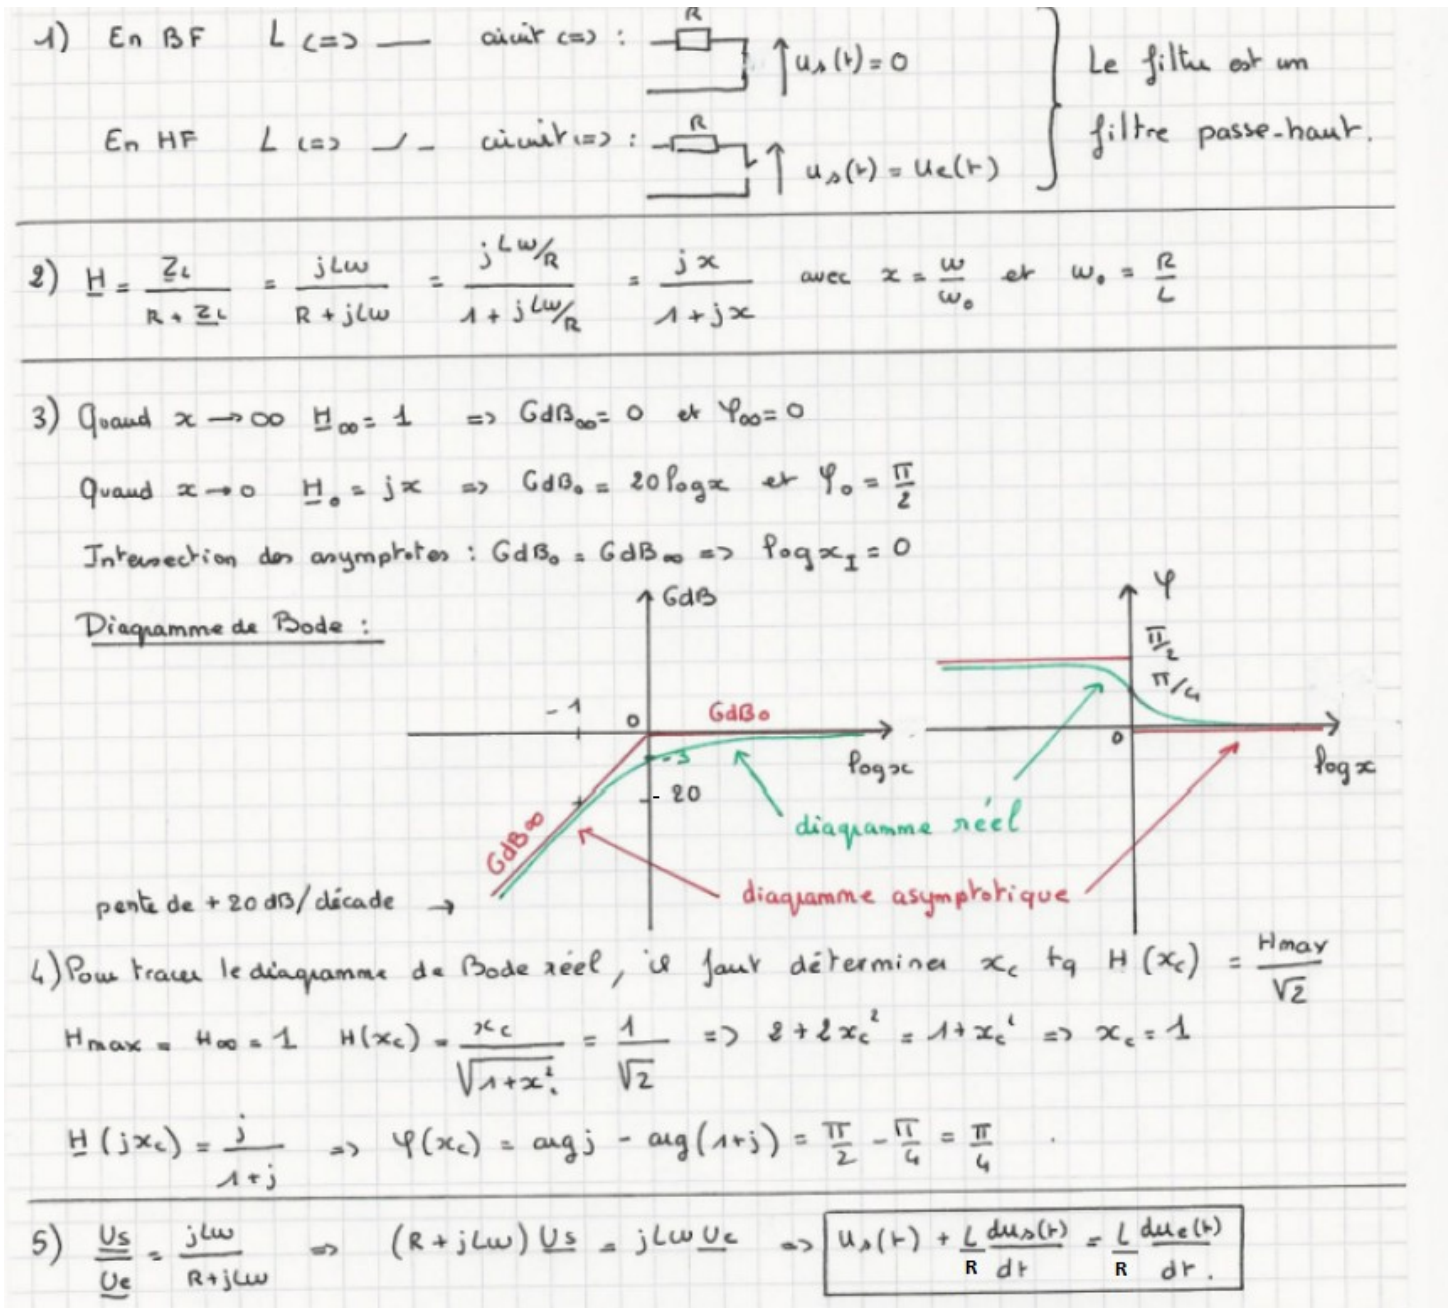 1) En BF L <=> — circuit <=> : R u_s(t) = 0
En HF L <=> circuit <=> : R u_s(t) = u_e(t)
Le filtre est un
filtre passe-haut.
2) H = Z_L / (R + Z_L) = jLω / (R + jLω) = (jLω/R) / (1 + jLω/R) = jx / (1 + jx) avec x = ω/ω₀ et ω₀ = R/L
3) Quand x → ∞ H_∞ = 1 => GdB_∞ = 0 et φ_∞ = 0
Quand x → 0 H_0 = jx => GdB_0 = 20 log x et φ_0 = π/2
Intersection des asymptotes : GdB_0 = GdB_∞ => log x_I = 0
Diagramme de Bode :
GdB
-1
0
GdB_0
log x
-3
-20
GdB_∞
φ
π/2
π/4
0
log x
diagramme réel
diagramme asymptotique
pente de +20 dB/décade →
4) Pour tracer le diagramme de Bode réel, il faut déterminer x_c tq H(x_c) = Hmax/√2
Hmax = H_∞ = 1 H(x_c) = x_c / √(1+x_c²) = 1/√2 => 2 + 2x_c² = 1 + x_c² => x_c = 1
H(jx_c) = j / (1+j) => φ(x_c) = arg j - arg(1+j) = π/2 - π/4 = π/4
5) Us/Ue = jLω / (R+jLω) => (R+jLω) Us = jLω Ue => u_s(t) + L/R du_s(t)/dt = L/R du_e(t)/dt.